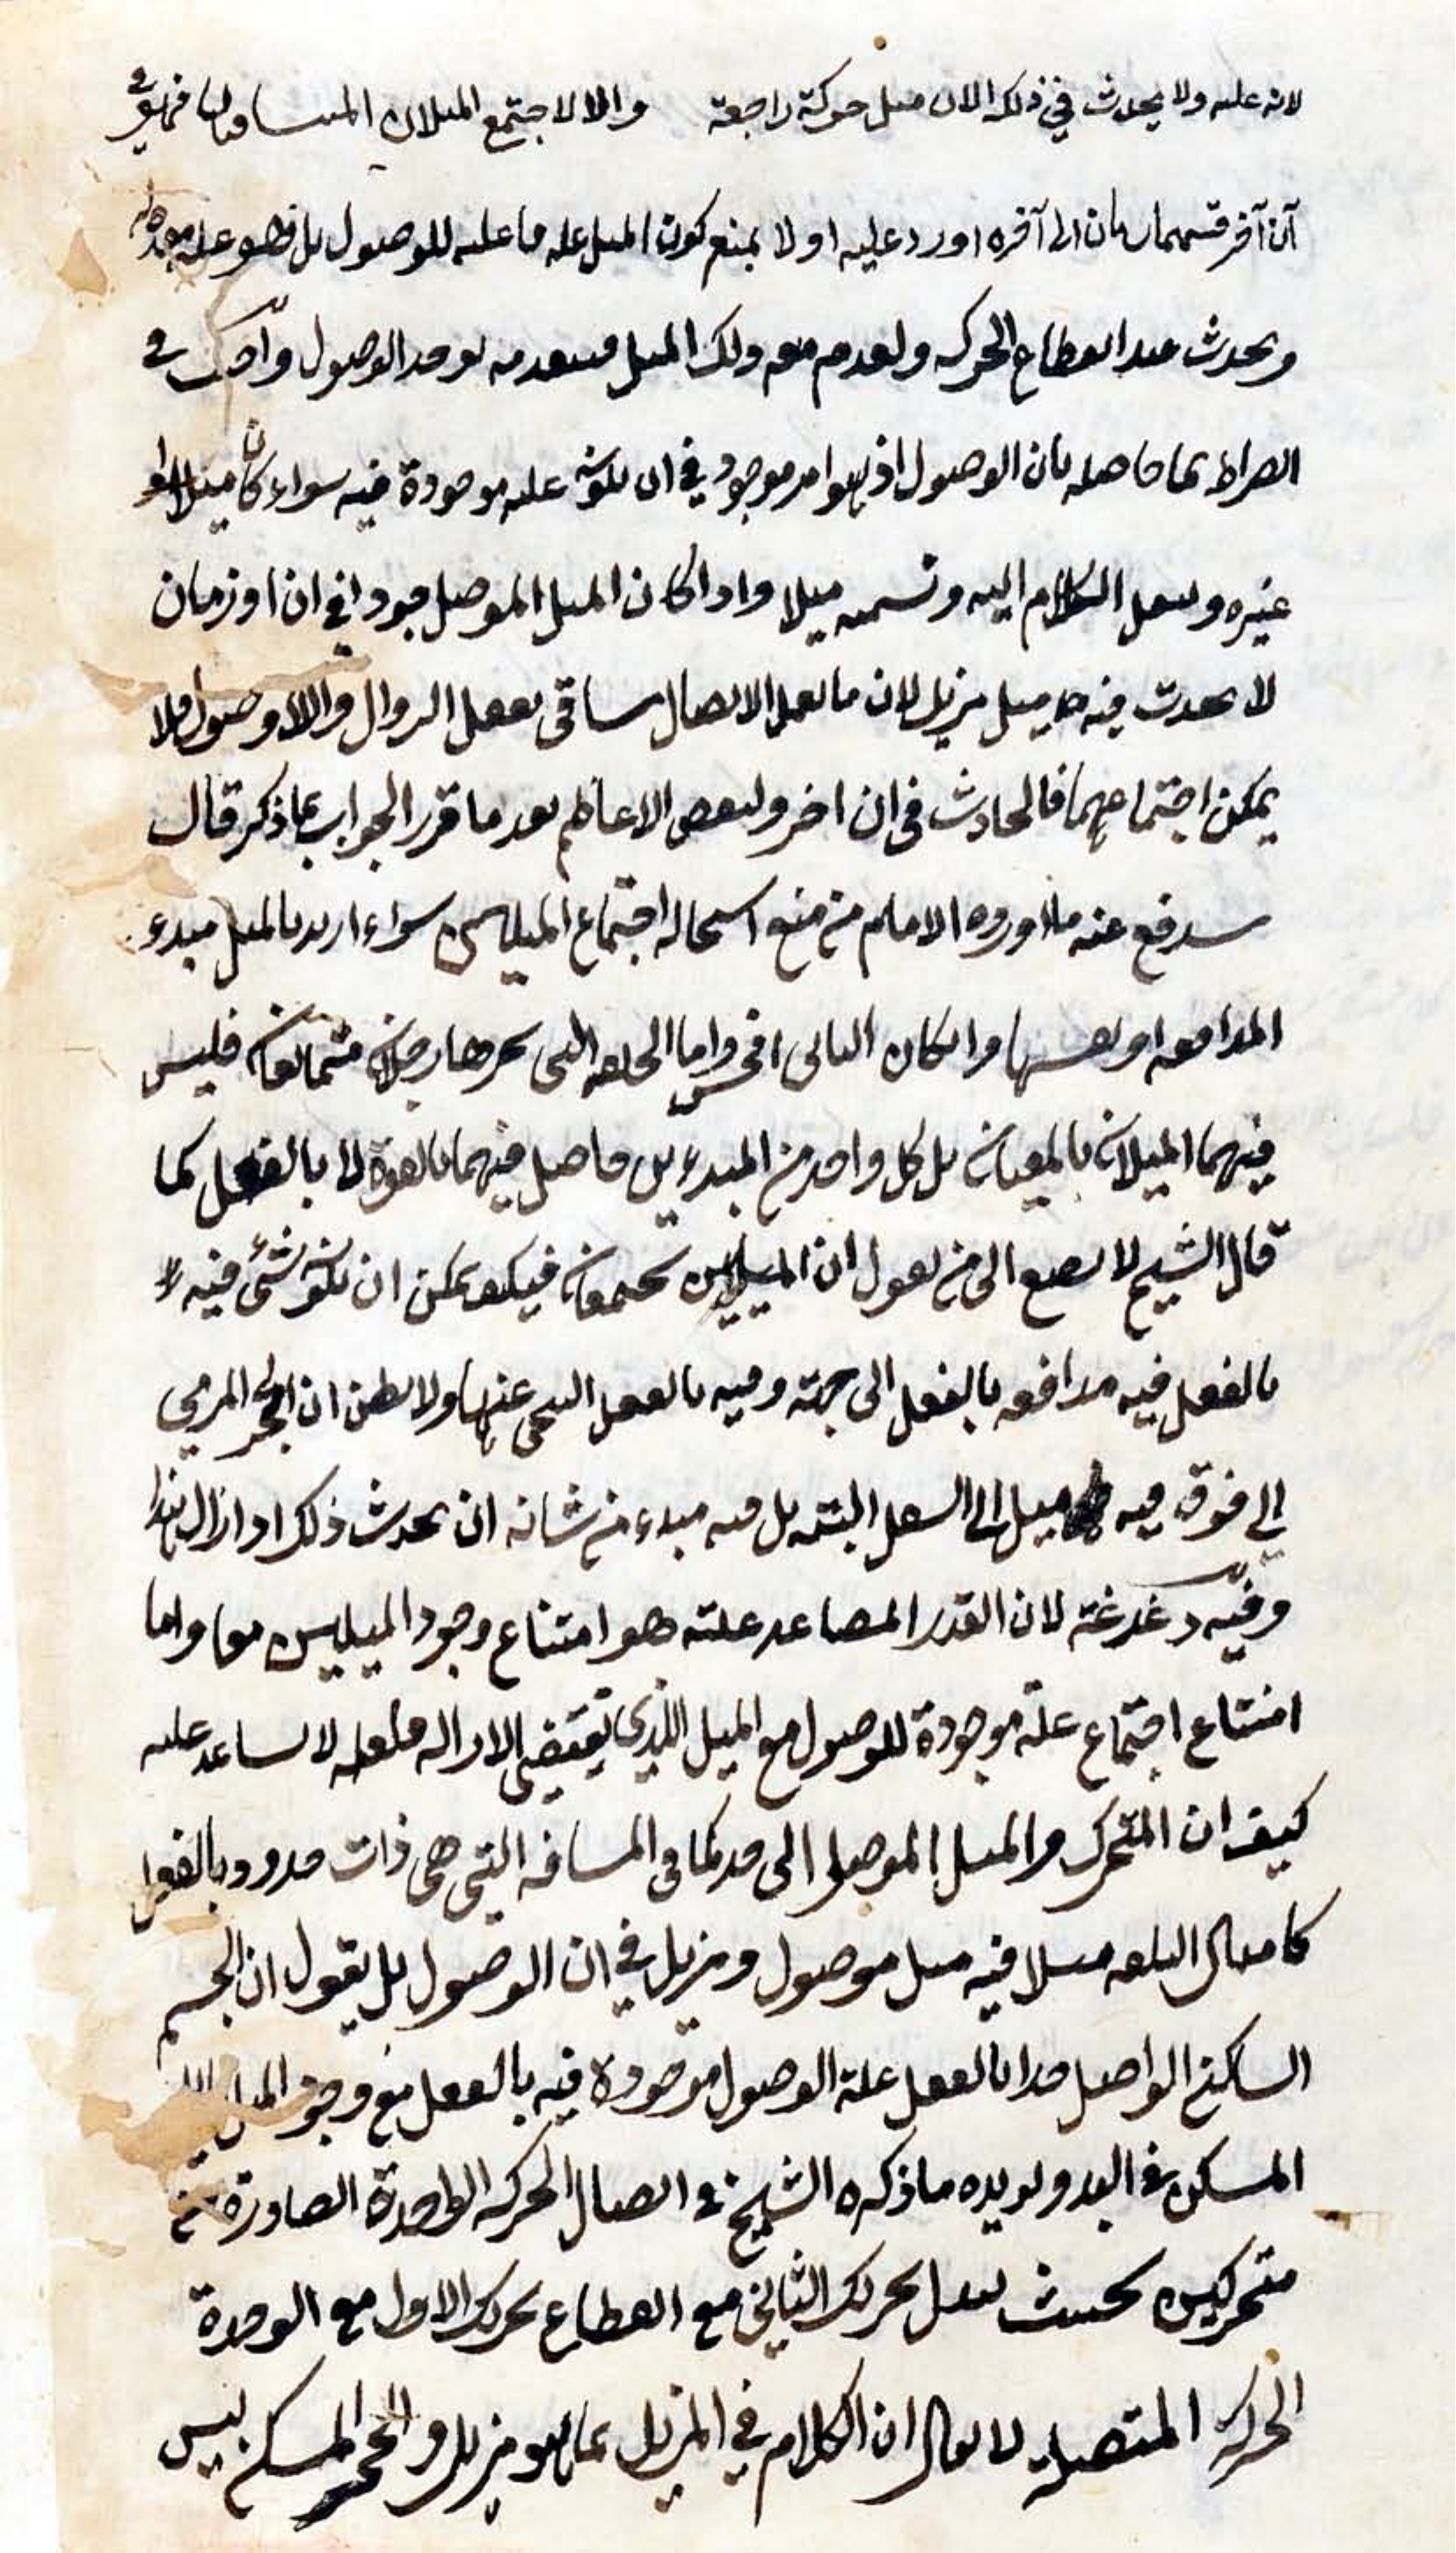 لانه علته ولا يحدث في ذلك الان ميل حركة راجعة والا لاجتمع الميلان المتنافيان فهو في
آن آخر قسمهما زمان الى آخره اورد عليه اولا بمنع كون الميل علة ما عليه للوصول بل هو علة معدة له
ويحدث عند انقطاع الحركه ولعدم معه ولك الميل فينعدم لوجد الوصول واجيب في
الصراط بما حاصله بان الوصول اذ هو امر موجود في ان يكون علته موجودة فيه سواء كان ميلا او
غيره وينقل الكلام اليه ونسميه ميلا واذا كان الميل الموصل موجودا في ان او زمان
لا يحدث فيه ميل مزيل لان ما يفعل الاتصال ينافي بفعل الزوال والا وصول فلا
يمكن اجتماعهما فالحادث في ان اخر ولبعض الاعاظم بعد ما قرر الجواب بما ذكر قال
يندفع عنه ما اورده الامام من منع استحاله اجتماع الميلين سواء اريد بالميل مبدء
المدافعه او نفسها وان كان الثاني افحش واما الحلقه التى يجرها رجلان متمانعان فليس
فيهما الميلان بالمعيان بل كل واحد من المبدءين حاصل فيهما بالقوة لا بالفعل كما
قال الشيخ لا تصغ الى من يقول ان الميلين يجتمعان فيكف يمكن ان يكون شئ فيه
بالفعل فيه مدافعه بالفعل الى جهته وفيه بالفعل التنحى عنها ولا تظن ان الحجر المرمي
الى فوق فيه ميل الى السفل البته بل فيه مبدء من شانه ان يحدث ذلك اذا زال
وفيه دغدغة لان القدر المصاعد علته هو امتناع وجود الميلين معا واما
امتناع اجتماع علة موجودة للوصول مع الميل الذي يقتضى الازاله فلعله لا يساعد عليه
كيف ان المتحرك والميل الموصل الى حد كما في المسافه التي هي ذات حدود بالفعل
كامثال البلعه مثلا فيه ميل موصول ومزيل في ان الوصول بل يقول ان الجسم
الساكن الواصل حدا بالفعل علة الوصول موجودة فيه بالفعل مع وجود الميل
المسكن في البعد ويؤيده ما ذكره الشيخ في اتصال الحركه الواحدة الصادرة من
متحركين بحيث يتصل تحريك الثاني مع انقطاع تحريك الاول مع الوحدة
الحركه المتصله لا يقال ان الكلام في المزيل بما هو مزيل والحجر المسكن ليس